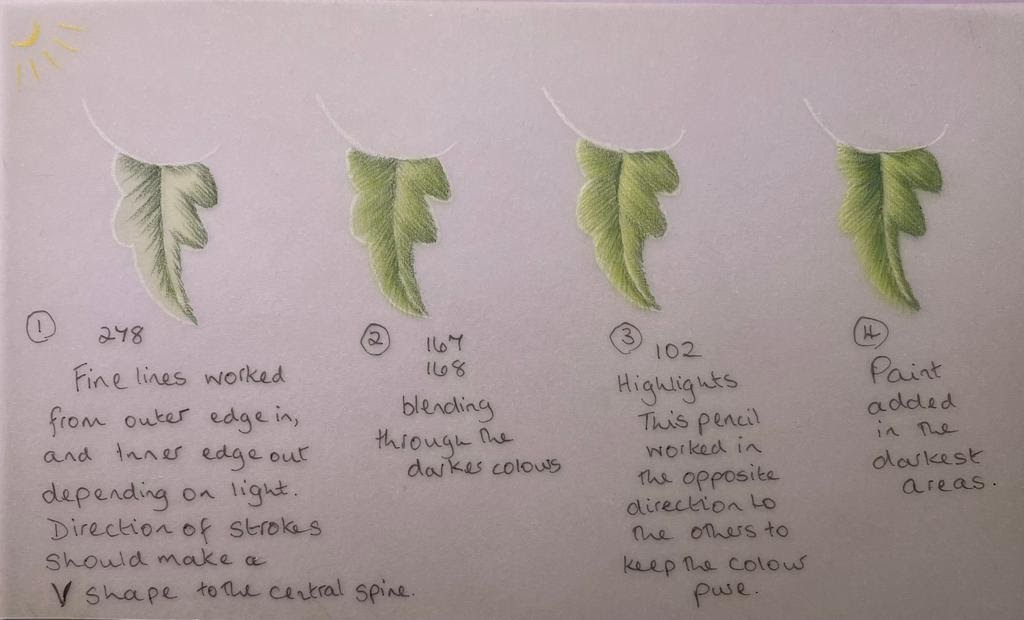 ① 278
Fine lines worked
from outer edge in,
and Inner edge out
depending on light.
Direction of strokes
should make a
V shape to the central spine.
② 167
168
blending
through the
darker colours
③ 102
Highlights
This pencil
worked in
the opposite
direction to
the others to
keep the colour
pure.
④
Paint
added
in the
darkest
areas.